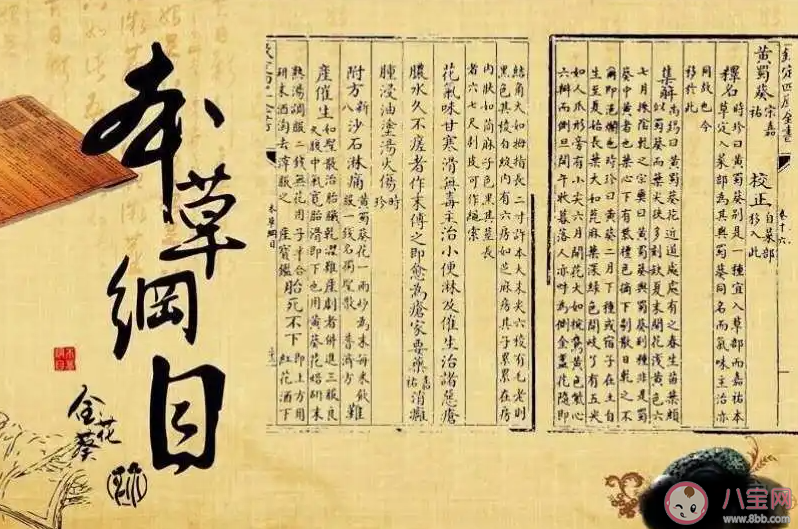 本草綱目
金花葵
欽定四庫全書
卷十六
黃蜀葵 宋嘉祐 校正 自菜部移入此
釋名 時珍曰黃蜀葵別是一種宜入草部而嘉祐本
草定入菜部為其與蜀葵同名而氣味主治亦
同故也今移於此
集解 禹錫曰黃蜀葵花近道處處有之春生苗葉頗
似蜀葵而葉尖狹多刻缺夏末開花淺黃色六
七月採陰乾之宗奭曰黃蜀葵與蜀葵別種非是蜀
葵中黃者也葉心下有紫檀色摘下剔散日乾之不
爾即浥爛也時珍曰黃葵二月下種或宿子在土自
生至夏始長葉大如蓖麻葉深綠色開岐丫有五尖
如人爪形旁有小尖六月開花大如椀鵞黃色紫心
六瓣而側旦開午收暮落人亦呼為側金盞花隨即
結角大如拇指長二寸許本大末尖六稜有毛老則
黑色其稜自綻内有六房如芝麻房其子纍纍在房
内狀如苘麻子色黑其莖長
者六七尺剥皮可作繩索
花氣味甘寒滑無毒主治小便淋及催生治諸惡瘡
膿水久不瘥者作末傅之即愈為瘡家要藥嘉祐消癰
腫浸油塗湯火傷時珍
附方新八沙石淋痛 黃蜀葵花一兩炒為末每米飲服一錢名獨聖散 普濟方 難
產催生 如聖散治胎臟乾澀難産劇者併進三服良久腹中氣寛胎滑即下也用黃葵花焙研末
熟湯調服二錢無花用子半合研末酒淘去滓服之 産寶鑑 胎死不下 即上方用紅花酒下
本草綱目
八宝网
www.8bb.com